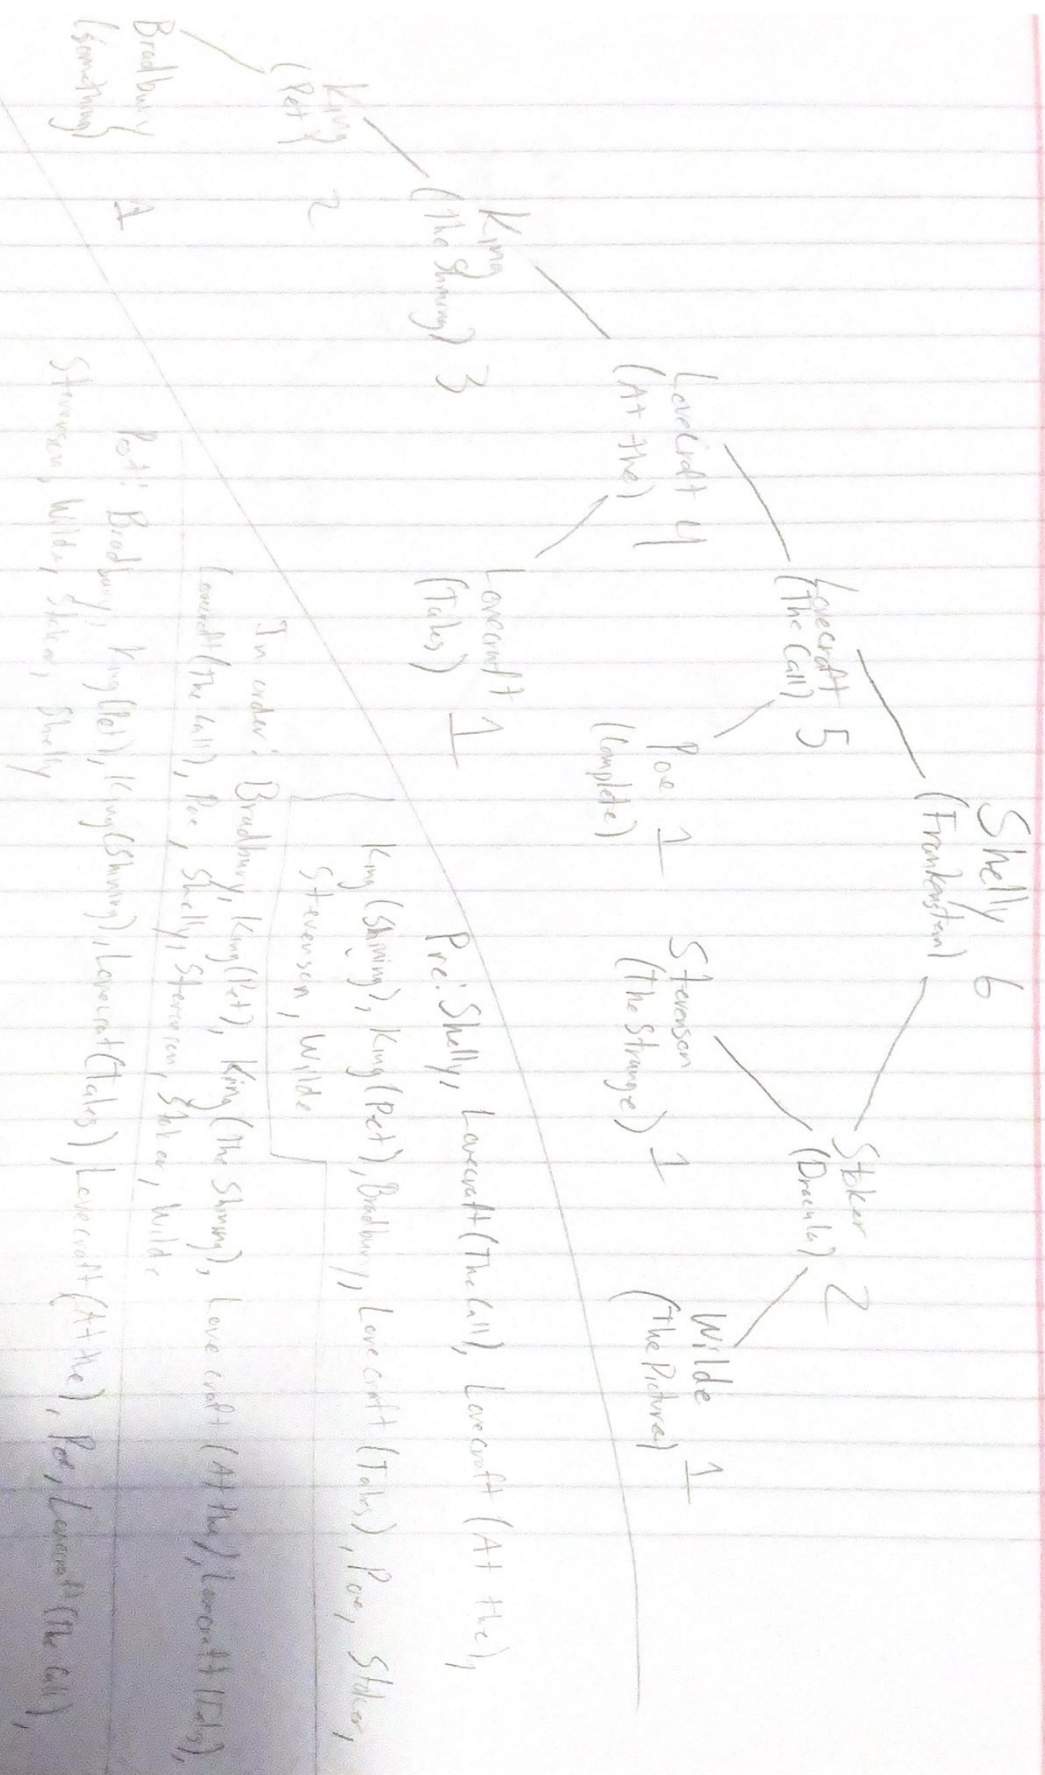 Shelly 6
(Frankenstein)
Lovecraft 5
(The Call)
Stoker 2
(Dracula)
Lovecraft 4
(At the)
Poe 1
(Complete)
Stevenson
(The Strange) 1
Wilde
(The Picture) 1
King
(The Shining) 3
Lovecraft 1
(Tales)
King
(Pet) 2
Bradbury
(Something) 1
Pre: Shelly, Lovecraft (The Call), Lovecraft (At the),
King (Shining), King (Pet), Bradbury, Lovecraft (Tales), Poe, Stoker,
Stevenson, Wilde
In order: Bradbury, King (Pet), King (The Shining), Lovecraft (At the), Lovecraft (Tales),
Lovecraft (The Call), Poe, Shelly, Stevenson, Stoker, Wilde
Post: Bradbury, King (Pet), King (Shining), Lovecraft (Tales), Lovecraft (At the), Poe, Lovecraft (The Call),
Stevenson, Wilde, Stoker, Shelly